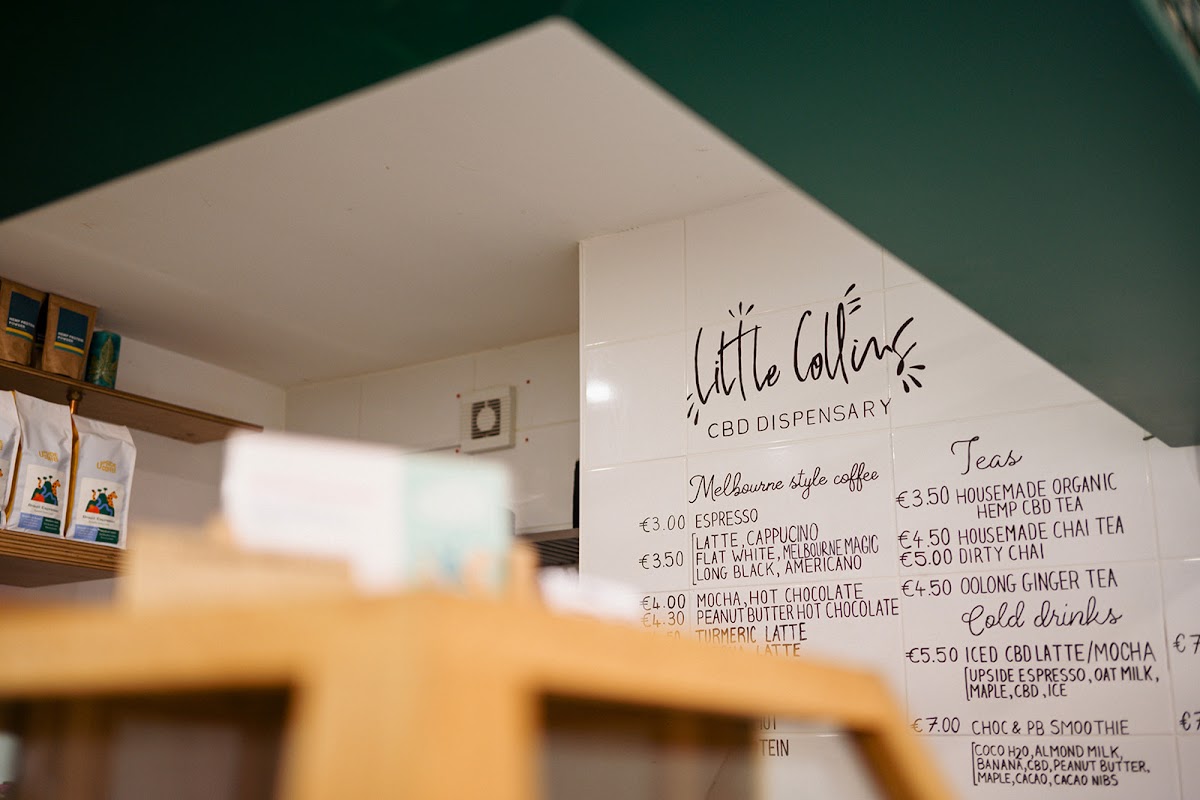 HEMP PROTEIN
POWDER
HEMP PROTEIN
POWDER
Little Collins
CBD DISPENSARY
Melbourne style coffee
€3.00 ESPRESSO
LATTE, CAPPUCINO
€3.50 FLAT WHITE, MELBOURNE MAGIC
LONG BLACK, AMERICANO
€4.00 MOCHA, HOT CHOCOLATE
€4.30 PEANUT BUTTER HOT CHOCOLATE
TURMERIC LATTE
LATTE
TEIN
Teas
€3.50 HOUSEMADE ORGANIC
HEMP CBD TEA
€4.50 HOUSEMADE CHAI TEA
€5.00 DIRTY CHAI
€4.50 OOLONG GINGER TEA
Cold drinks
€5.50 ICED CBD LATTE/MOCHA
UPSIDE ESPRESSO, OAT MILK,
MAPLE, CBD, ICE
€7.00 CHOC & PB SMOOTHIE
COCO H2O, ALMOND MILK,
BANANA, CBD, PEANUT BUTTER,
MAPLE, CACAO, CACAO NIBS
€7
€7